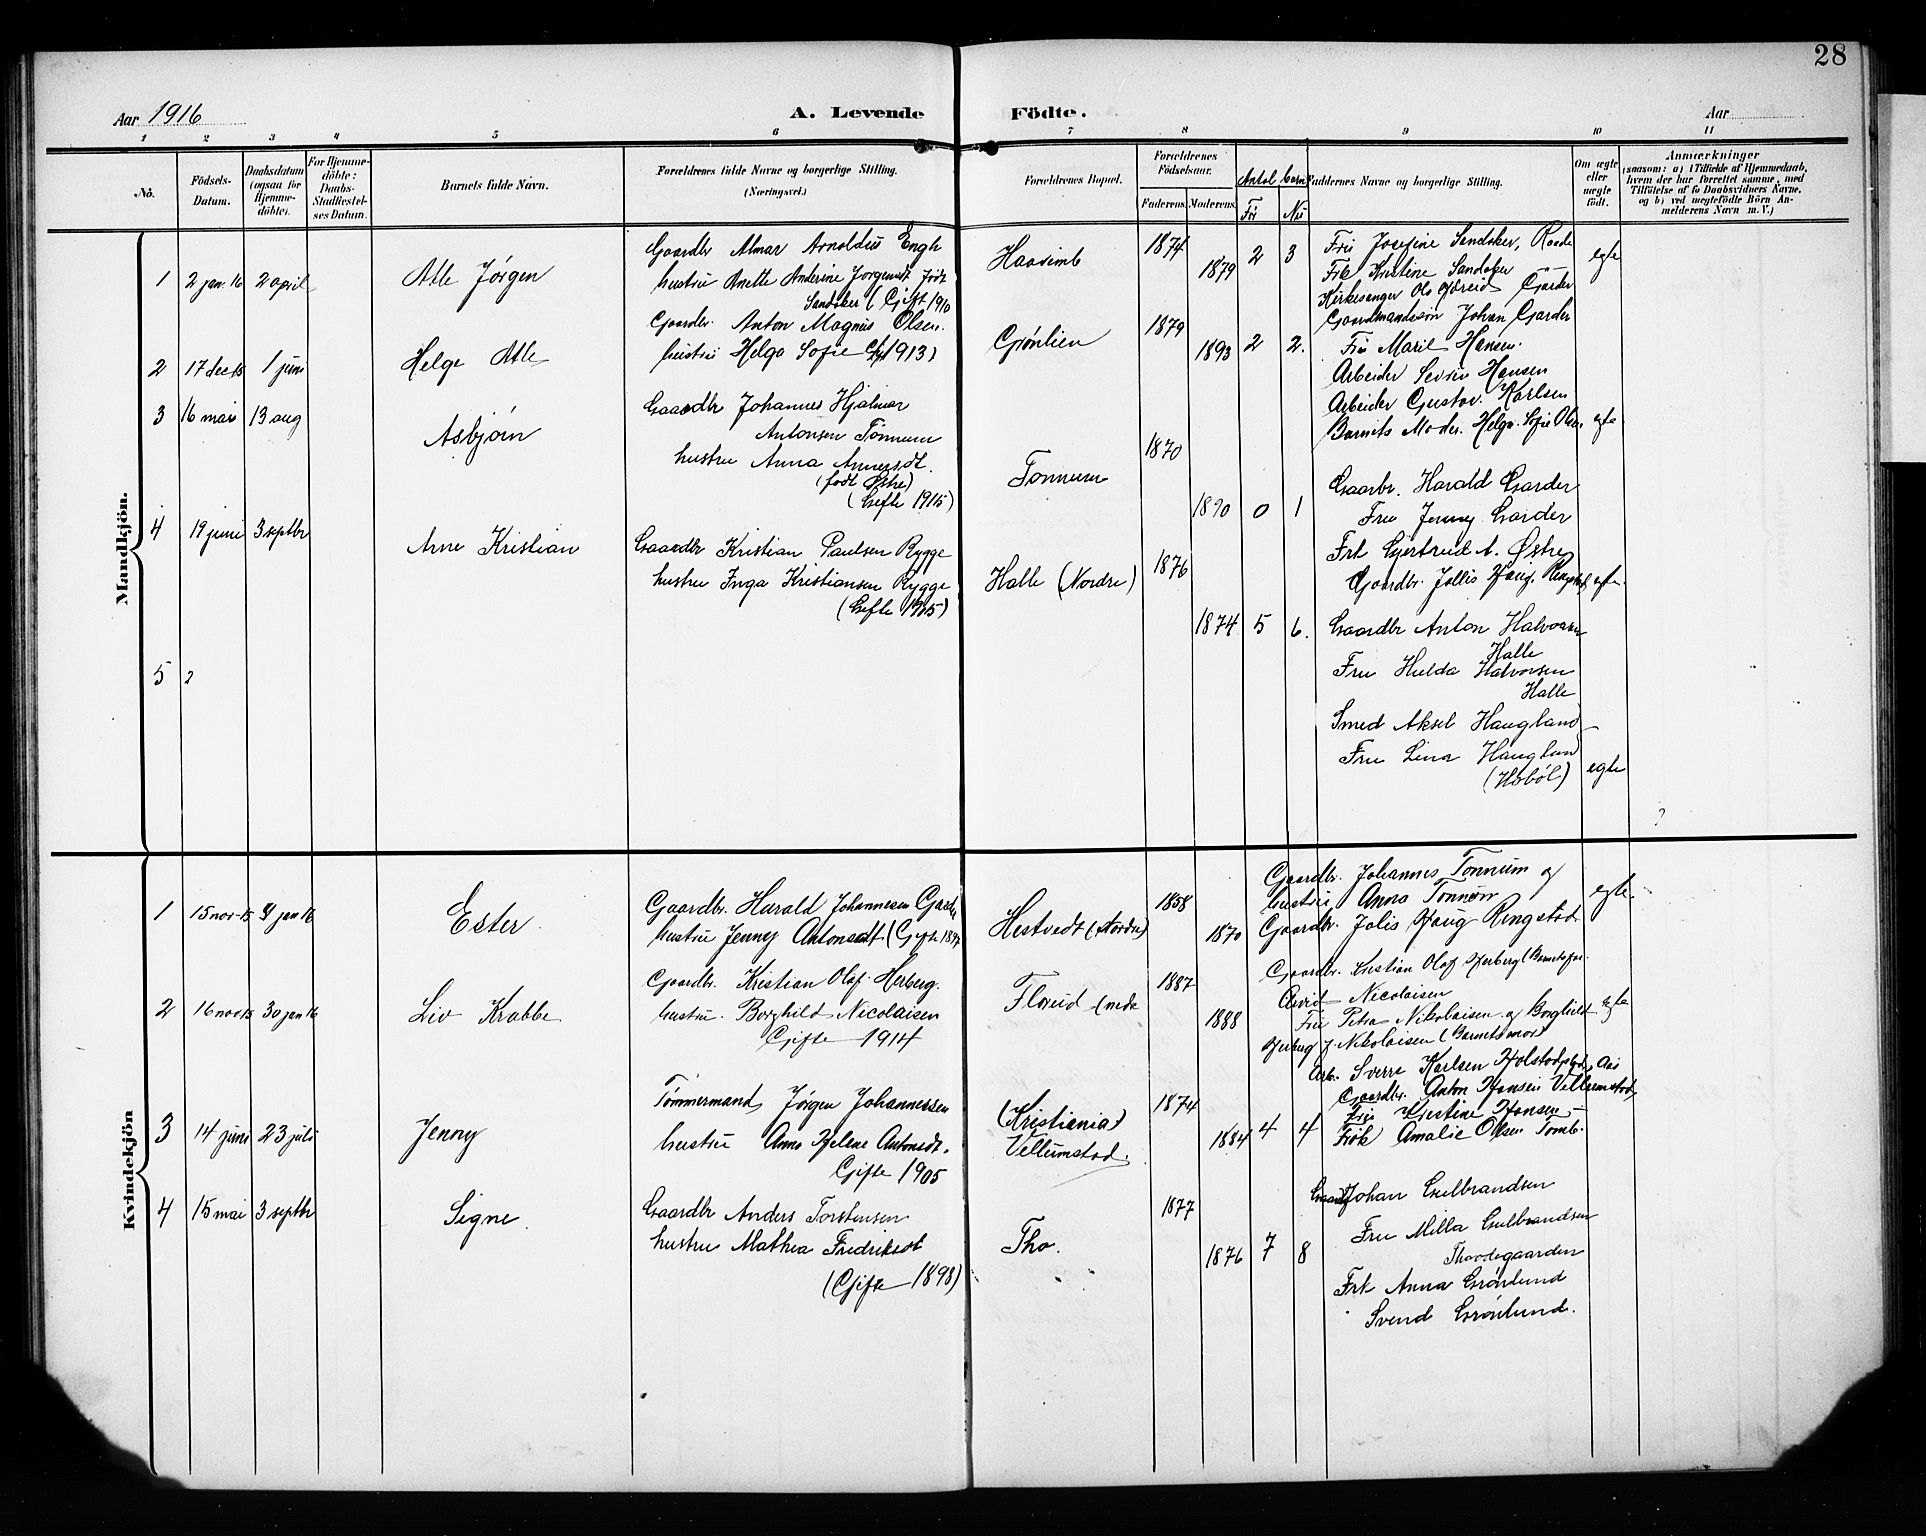 28
Aar 1916
A. Levende
Födte.
Aar
1 2 3 4 5 6 7 8 9 10 11
No.
Födsels-Datum.
Daabsdatum (ogsaa for Hjemme-döbte).
For Hjemme-döbte: Daabs-Stadfæstel-ses Datum.
Barnets fulde Navn.
Forældrenes fulde Navne og borgerlige Stilling.
(Næringsvei.)
Forældrenes Bopæl.
Forældrenes Födselsaar.
Faderens. Moderens.
Antal barn
Før Nu
Faddernes Navne og borgerlige Stilling.
Om ægte eller uægte født.
Anmærkninger
(saasom: a) i Tilfælde af Hjemmedaab, hvem der har forrettet samme, med Tilföielse af to Daabsvidners Navne, og b) ved uægtefödte Börn An-melderens Navn m. V.)
Mandkjön.
1 2 jan. 16 2 april
Atle Jørgen
Gaardbr Almar Arnoldus Engh
hustru Anette Anderine Jørgensdt født
Sandaker (Gift 1910
Haavimb
1874 1879 2 3
Fru Josefine Sandaker, Raade
Frk Kristine Sandaker
Kirkesanger Ole Garder
Gaardmandssøn Johan Garder
egte
2 17 dec 15 1 juni
Helge Atle
Gaardbr. Anton Magnus Olsen.
hustru Helga Sofie (g. 1913)
Grønlien
1879 1893 2 2.
Fru Maril Hansen.
Arbeider Sevrin Hansen
Arbeider Gustav. Karlsen
Barnets Moder. Helga Sofie Olsen
egte
3 16 mai 13 aug
Asbjørn
Gaardbr Johannes Hjalmar
Antonsen Tonnum
hustru Anna Annersdt.
(født Østre)
(Gifte 1915)
Tonnum
1870 1890 0 1
Gaarbr. Harald Garder
Fru Jenny Garder
Frk Gjertrud A. Østre
Gaardbr. Jollis Haug, Ringstad
egte.
4 19 juni 3 septbr
Arne Kristian
Gaardbr Kristian Paulsen Rygge
hustru Inga Kristiansen Rygge
(Gifte 1915)
Halle (Nordre)
1876 1874 5 6.
Gaardbr Anton Halvorsen
Halle
Fru Hulda Halvorsen
Halle
Smed Aksel Haugland
Fru Lina Haugland
(Hobøl)
egte
5 2
Kvindekjön
1 15 nov-15 9 jan 16
Ester
Gaardbr. Harald Johannesen Garder
hustru Jenny Antonsdt (Gifte 1897
Hestvedt (Nordre)
1858 1870
Gaardbr. Johannes Tonnum og
hustru Anna Tonnum
Gaardbr. Jolis Haug Ringstad
egte.
2 16 nov 15 30 jan 16
Liv Krabbe.
Gaardbr. Kristian Olaf Herberg.
hustru. Borghild Nicolaisen
Gifte 1914
Florud (nedre
1887 1888
Gaardbr. Kristian Olaf Herberg (Barnets far.
Arvid Nicolaisen
Fru Petra Nikolaisen og Borghild
Herberg f. Nikolaisen (Barnets mor)
egte
3 14 juni 23 juli
Jenny
Tømmermand Jørgen Johannessen
hustru Anna Helene Antonsdt.
Gifte 1905
(Kristiania)
Vellumstad.
1874 1884 4 4
Arb. Sverre Karlsen Holstad, Aas
Gaardbr. Anton Hansen Vellumstad
Fru Kristine Hansen
Frøk Amalie Olsen Tomb.
4 15 mai 3 septbr
Signe.
Gaardbr Anders Torstensen
hustru Mathea Fredriksdt
(Gifte 1898)
Tho.
1877 1876 7 8
Gaardb Johan Gulbrandsen
Fru Milla Gulbrandsen
Thordegaarden
Frk Anna Grønlund
Svend Grønlund.